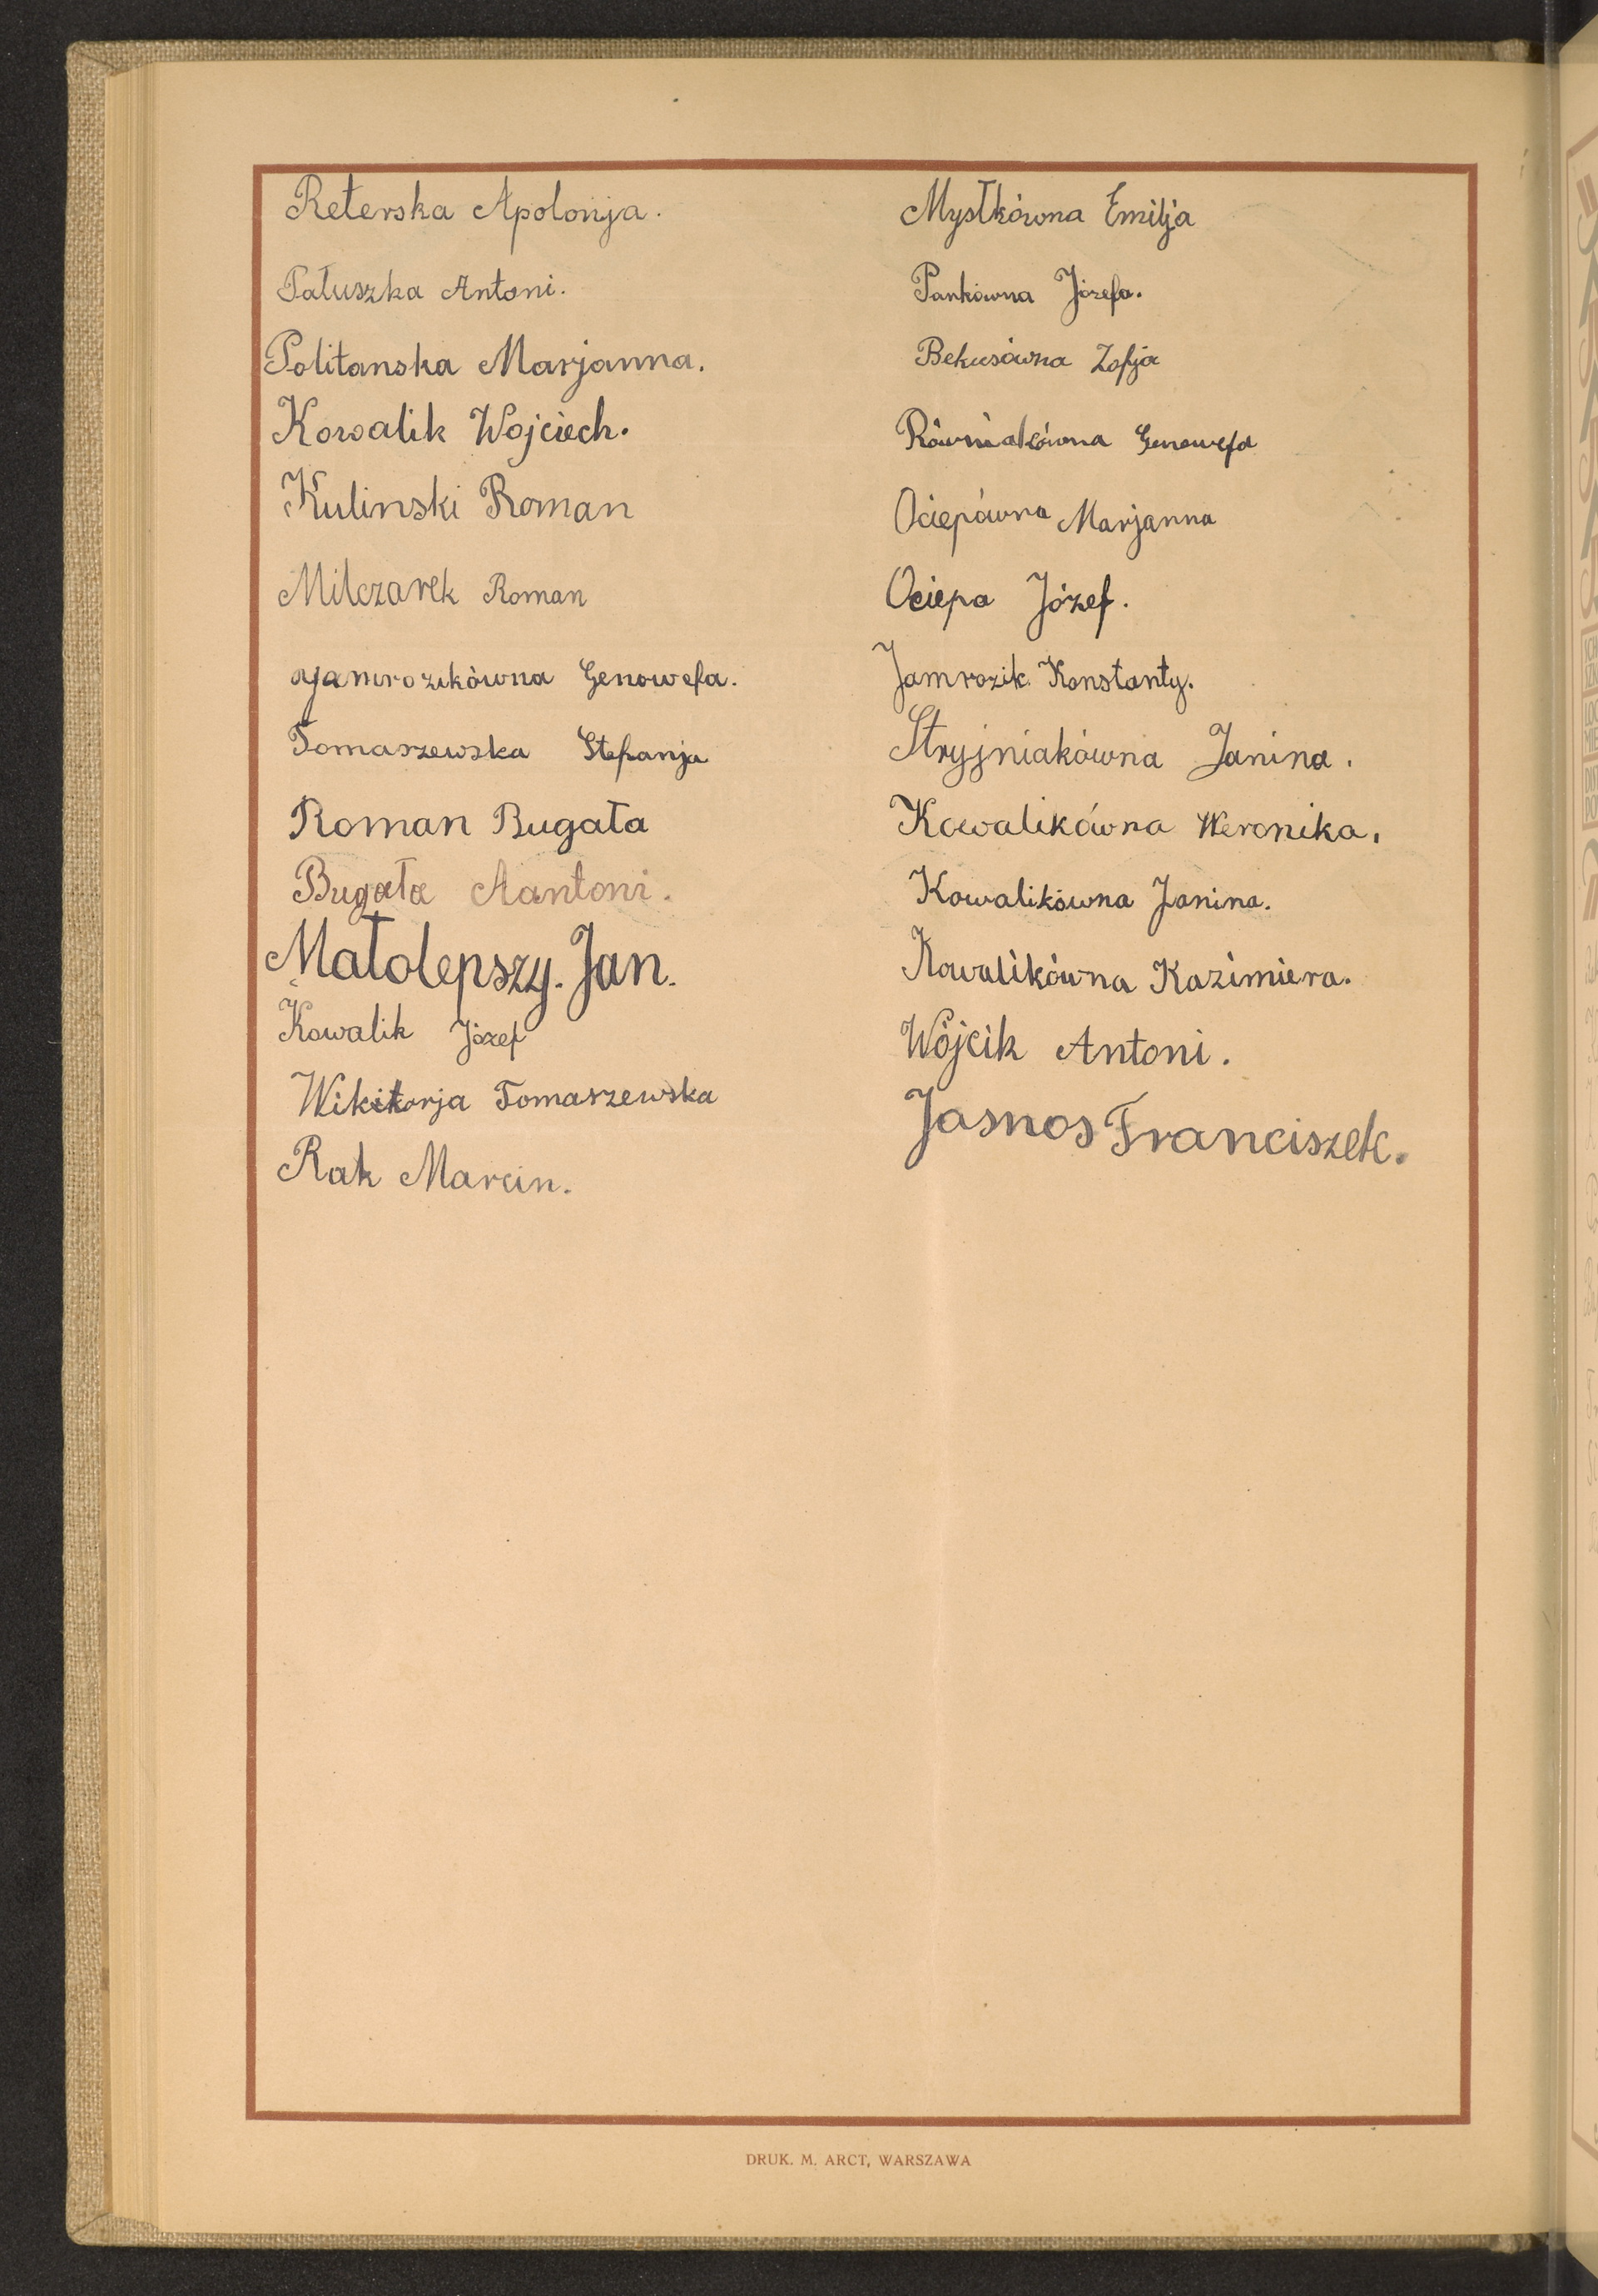 Reterska Apolonja.
Pałuszka Antoni.
Politanska Marjanna.
Kowalik Wojciech.
Kulinski Roman
Milczarek Roman
Jamrozikówna Genowefa.
Tomaszewska Stefanja
Roman Bugała
Bugała Aantoni.
Małolepszy. Jan.
Kowalik Józef
Wikitorja Tomaszewska
Rak Marcin.
Mystkówna Emilja
Pankówna Józefa.
Bekusówna Zofja
Równiakówna Genowefa
Ociepówna Marjanna
Ociepa Józef.
Jamrozik Konstanty.
Stryjniakówna Janina.
Kowalikówna Weronika.
Kowalikówna Janina.
Kowalikówna Kazimiera.
Wójcik Antoni.
Jasnos Franciszek.
DRUK. M. ARCT, WARSZAWA